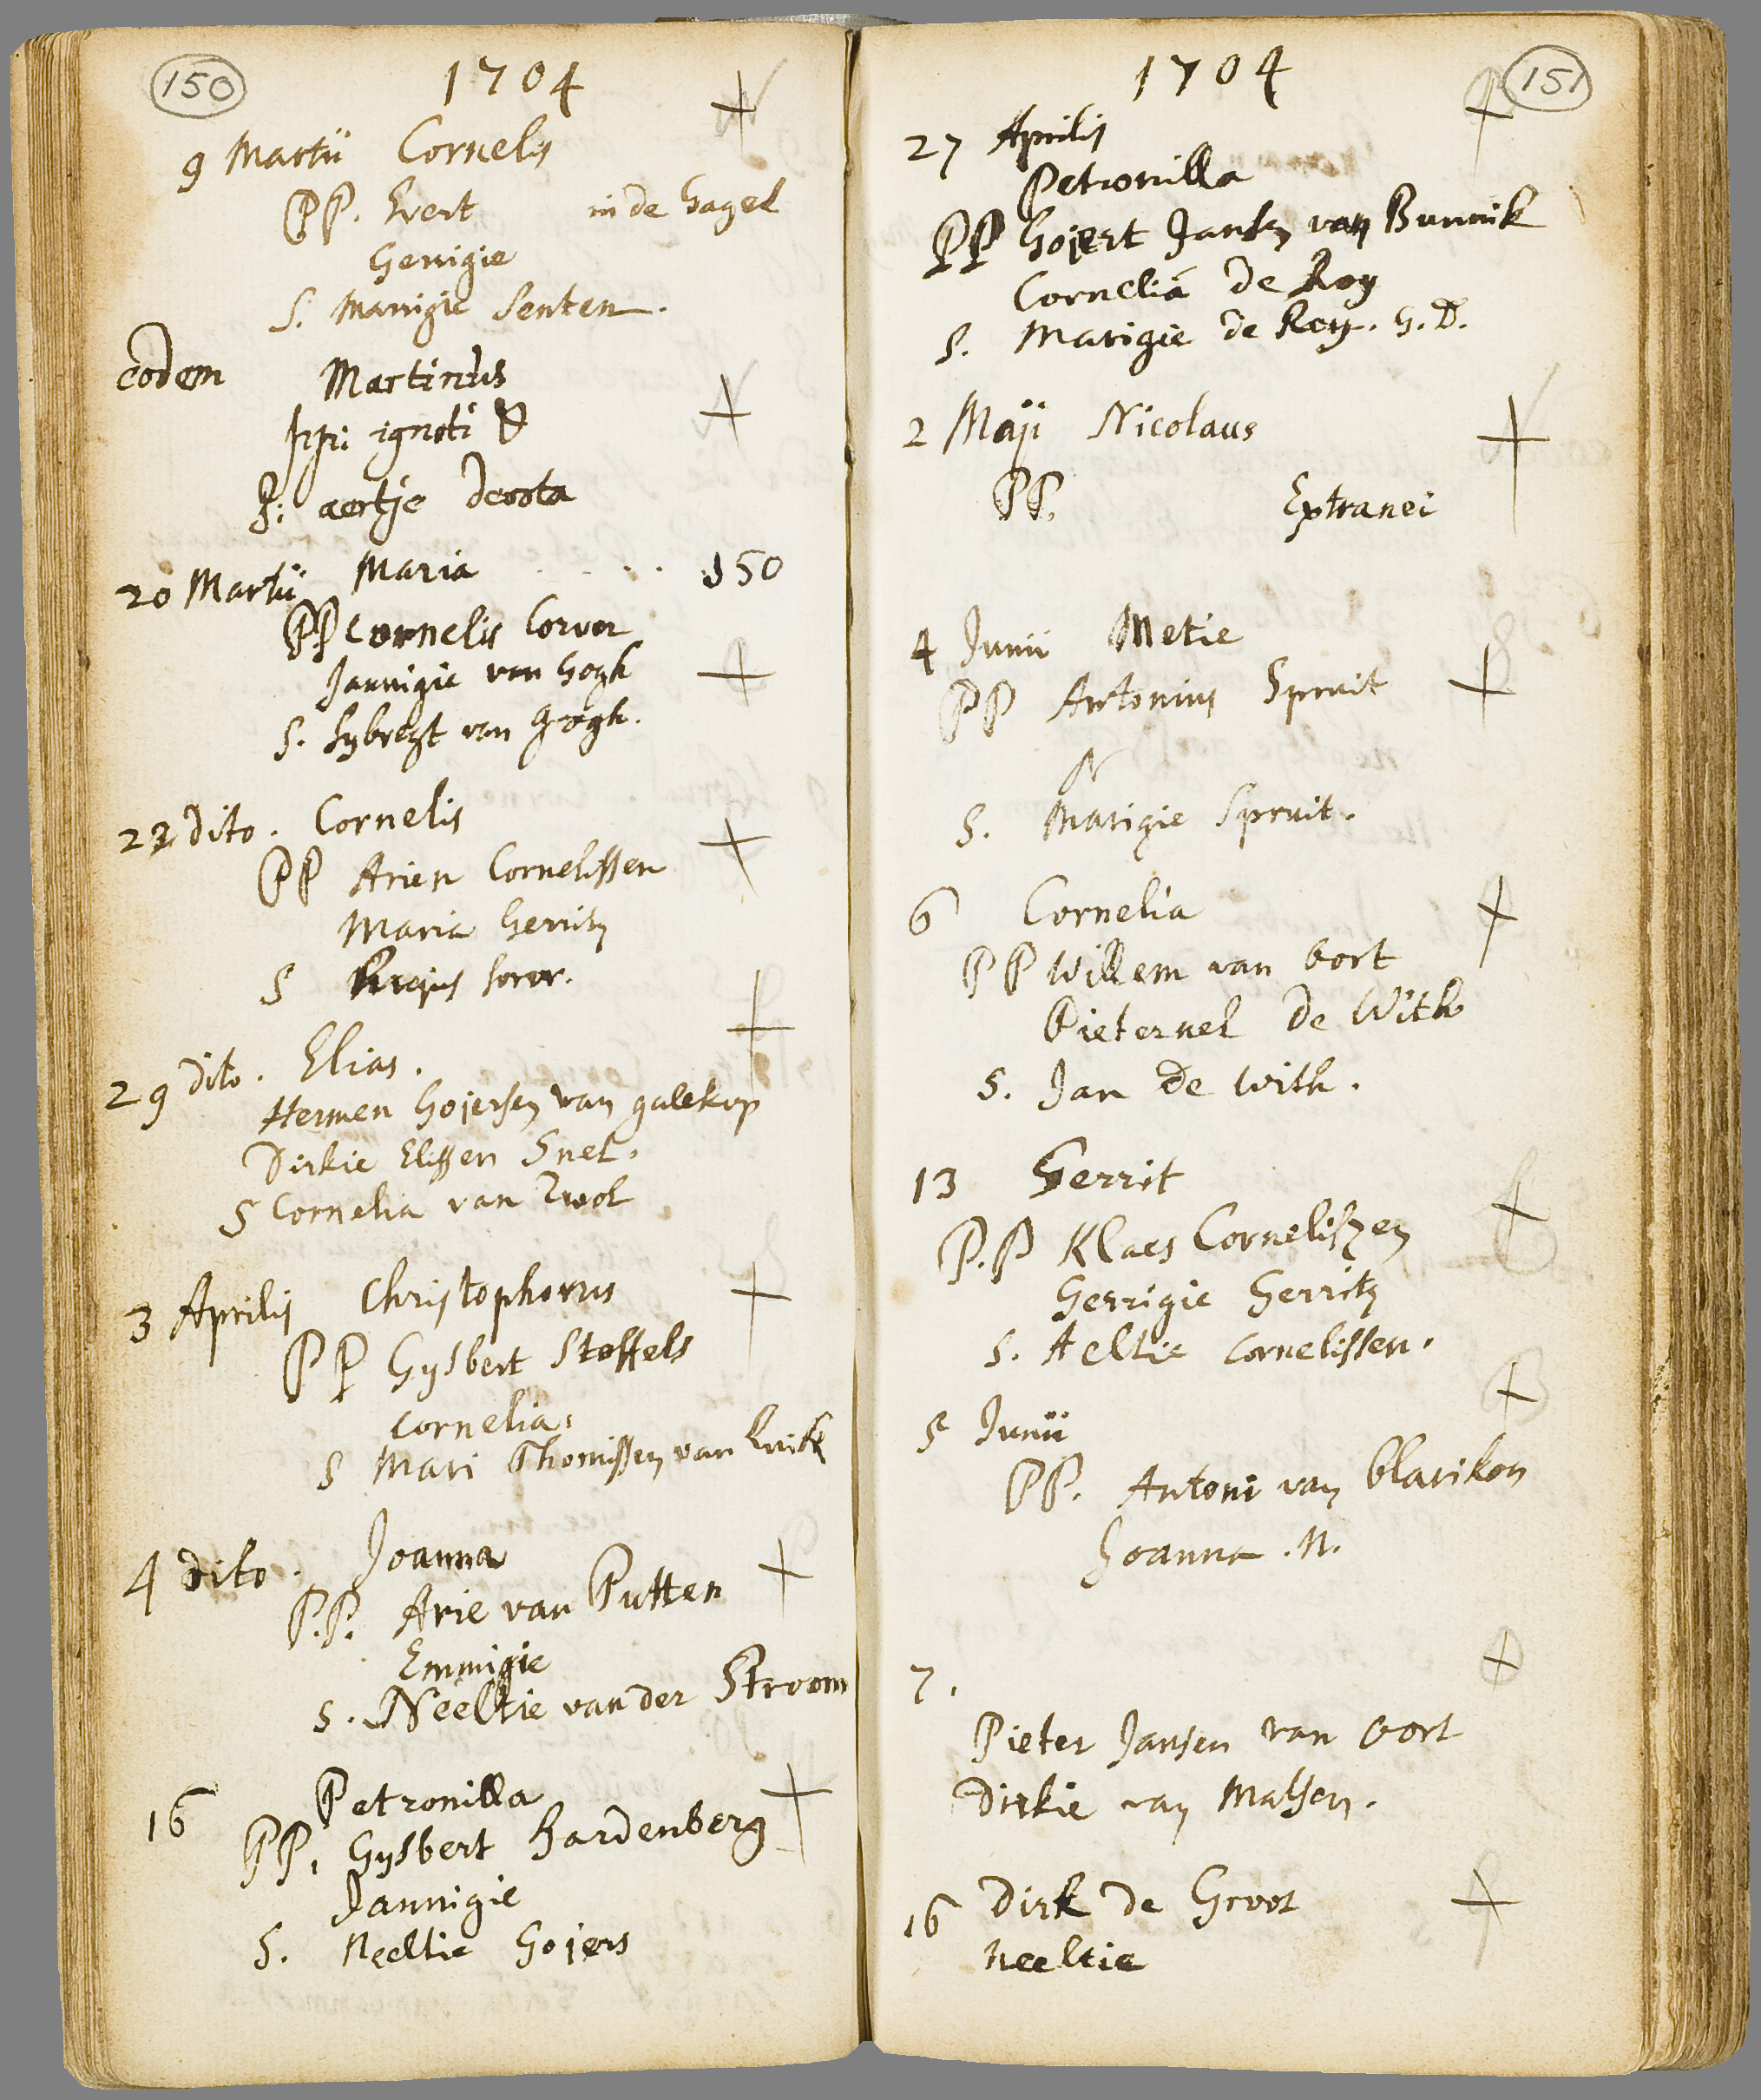 150
1704
9 Martii Cornelis
PP. Evert in de Gagel
Gerrigie
S. Marrigie Senten.
eodem Martinus
pp: ignoti
S: aertje
20 Martii Maria . . . . 150
PP Cornelis Corver
Jannigie van Gogh
S. Sybregt van Gogh.
22 dito. Cornelis
PP Arien Cornelissen
Maria Gerritz
S hujus soror.
29 dito. Elias.
Hermen Gojersen van galekop
Dirkie Elissen Snel.
S Cornelia van Zwol
3 Aprilis Christophorus
PP Gysbert Stoffels
Cornelia.
S Mari Thomissen van
4 dito. Joanna
P.P. Arie van Putten
Emmigie
S. Neeltie van der Stroom
16 Petronilla
PP. Gysbert Hardenberg
Jannigie
S. Neeltie Gojers
151
1704
27 Aprilis
Petronilla
PP Gojert Jansen van Bunnik
Cornelia de Roy
S. Marigie de Roy. G.D.
2 Maji Nicolaus
PP. Extranei
4 Junii Metie
PP Antonius Spruit
N
S. Marigie Spruit.
6 Cornelia
PP Willem van Oort
Pieternel de With
S. Jan de With.
13 Gerrit
P.P Klaes Corneliszen
Gerrigie Gerritz
S. Aeltie Cornelissen.
5 Junii
PP. Antoni van Blarikon
Joanna. N.
7.
Pieter Jansen van Oort
Dirkie van Malsen.
16 Dirk de Groot
Neeltie